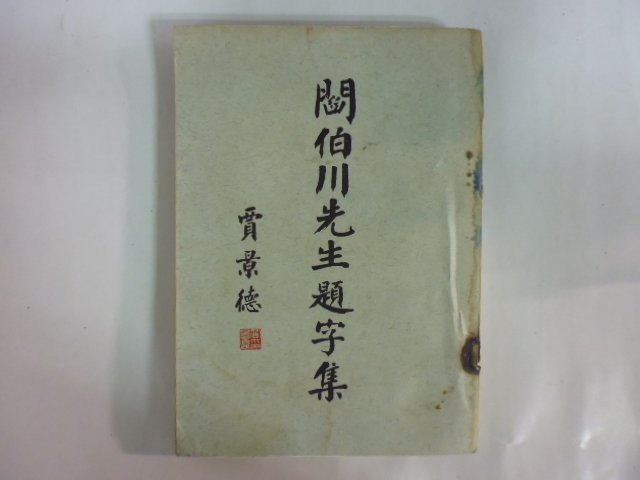 閻伯川先生題字集
賈景德